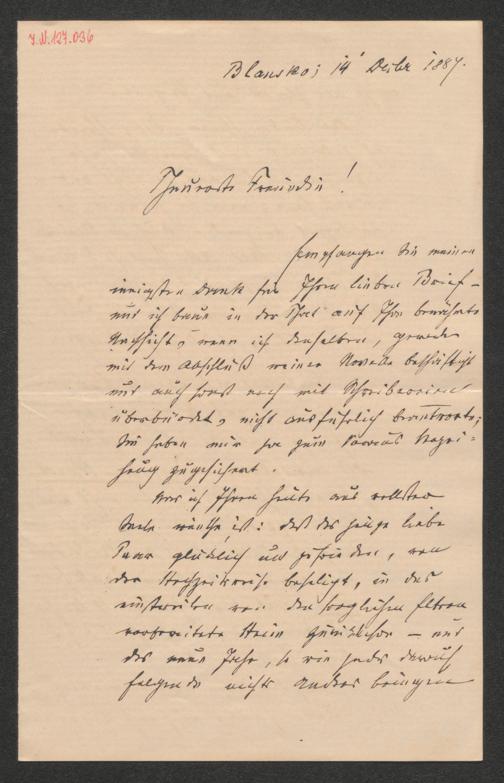 J.N. 127.036
Blansko; 14 Dezbr 1887.
Theuerste Freundin!
Empfangen Sie meinen
innigsten Dank für Ihren lieben Brief –
und ich baue in der That auf Ihre bewährte
Nachsicht, wenn ich denselben, gerade
mit dem Abschluß meiner Novelle beschäftigt
und auch sonst noch mit Schreibereien
überbürdet, nicht ausführlich beantworte;
Sie haben mir ja zum Voraus Verzei-
hung zugesichert.
Was ich Ihnen heute aus vollster
Seele wünsche, ist: daß das junge liebe
Paar glücklich und zufrieden, von
der Hochzeitsreise beseligt, in das
einstweilen von den sorglichen Eltern
vorbereitete Heim zurückkehre – und
das neue Jahr, so wie jedes darauf
folgende nichts Anderes bringen